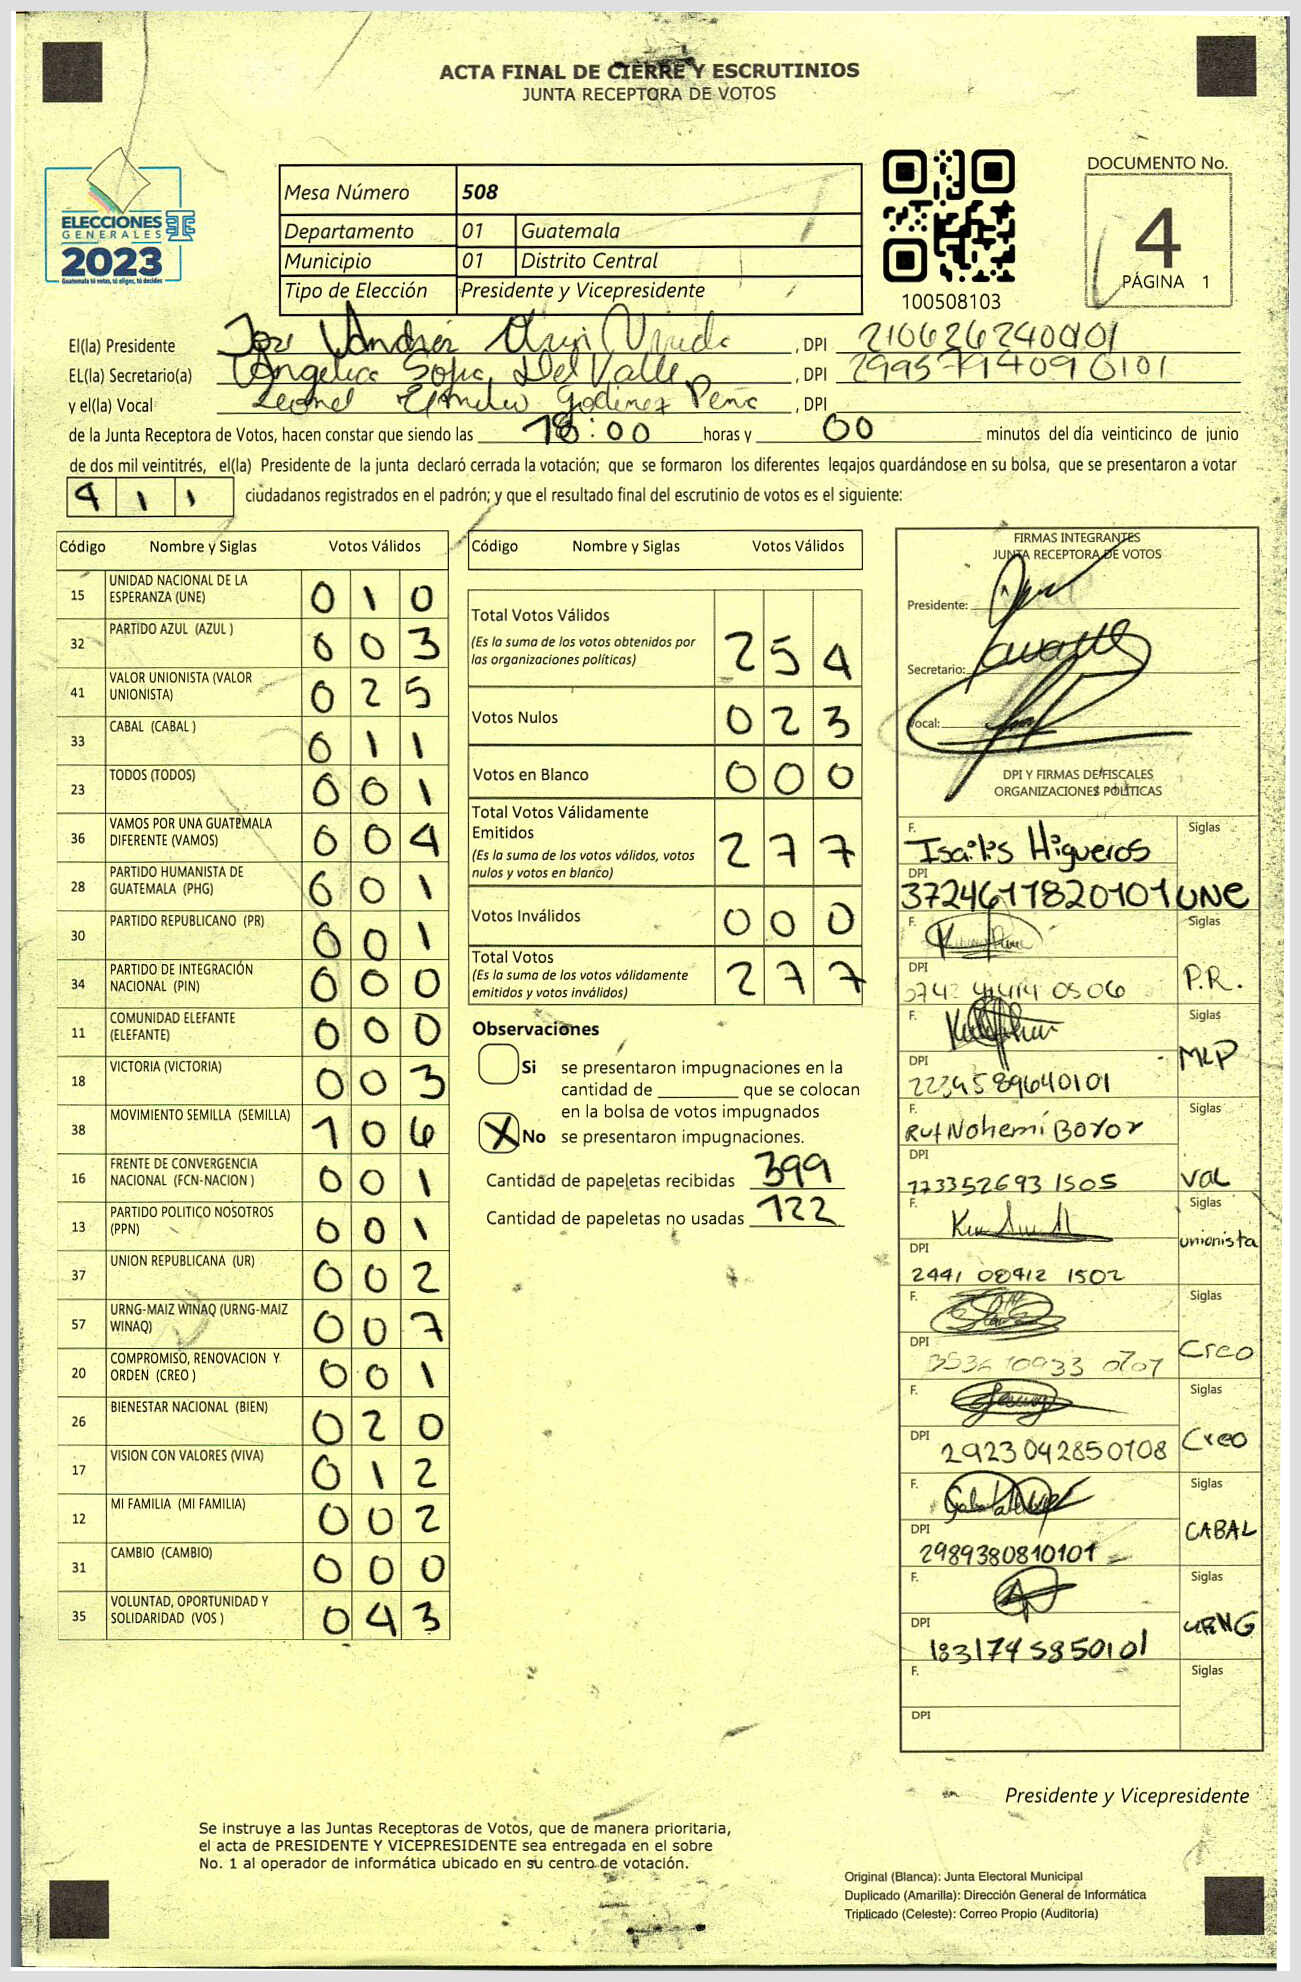 ACTA FINAL DE CIERRE Y ESCRUTINIOS
JUNTA RECEPTORA DE VOTOS
ELECCIONES
GENERALES
2023
Guatemala tú votas, tú eliges, tú decides
Mesa Número 508
Departamento 01 Guatemala
Municipio 01 Distrito Central
Tipo de Elección Presidente y Vicepresidente
100508103
DOCUMENTO No.
4
PÁGINA 1
El(la) Presidente , DPI
EL(la) Secretario(a) Angelica Sofia Del Valle , DPI
y el(la) Vocal Leonel Godinez Peña , DPI
de la Junta Receptora de Votos, hacen constar que siendo las 18:00 horas y 00 minutos del día veinticinco de junio
de dos mil veintitrés, el(la) Presidente de la junta declaró cerrada la votación; que se formaron los diferentes legajos guardándose en su bolsa, que se presentaron a votar
411 ciudadanos registrados en el padrón; y que el resultado final del escrutinio de votos es el siguiente:
Código Nombre y Siglas Votos Válidos
15 UNIDAD NACIONAL DE LA ESPERANZA (UNE) 0 1 0
32 PARTIDO AZUL (AZUL ) 0 0 3
41 VALOR UNIONISTA (VALOR UNIONISTA) 0 2 5
33 CABAL (CABAL ) 0 1 1
23 TODOS (TODOS) 0 0 1
36 VAMOS POR UNA GUATEMALA DIFERENTE (VAMOS) 0 0 4
28 PARTIDO HUMANISTA DE GUATEMALA (PHG) 0 0 1
30 PARTIDO REPUBLICANO (PR) 0 0 1
34 PARTIDO DE INTEGRACIÓN NACIONAL (PIN) 0 0 0
11 COMUNIDAD ELEFANTE (ELEFANTE) 0 0 0
18 VICTORIA (VICTORIA) 0 0 3
38 MOVIMIENTO SEMILLA (SEMILLA) 1 0 6
16 FRENTE DE CONVERGENCIA NACIONAL (FCN-NACION ) 0 0 1
13 PARTIDO POLITICO NOSOTROS (PPN) 0 0 1
37 UNION REPUBLICANA (UR) 0 0 2
57 URNG-MAIZ WINAQ (URNG-MAIZ WINAQ) 0 0 7
20 COMPROMISO, RENOVACION Y ORDEN (CREO ) 0 0 1
26 BIENESTAR NACIONAL (BIEN) 0 2 0
17 VISION CON VALORES (VIVA) 0 1 2
12 MI FAMILIA (MI FAMILIA) 0 0 2
31 CAMBIO (CAMBIO) 0 0 0
35 VOLUNTAD, OPORTUNIDAD Y SOLIDARIDAD (VOS ) 0 4 3
Código Nombre y Siglas Votos Válidos
Total Votos Válidos 2 5 4
(Es la suma de los votos obtenidos por
las organizaciones políticas)
Votos Nulos 0 2 3
Votos en Blanco 0 0 0
Total Votos Válidamente
Emitidos 2 7 7
(Es la suma de los votos válidos, votos
nulos y votos en blanco)
Votos Inválidos 0 0 0
Total Votos 2 7 7
(Es la suma de los votos válidamente
emitidos y votos inválidos)
Observaciones
Si se presentaron impugnaciones en la
cantidad de ________ que se colocan
en la bolsa de votos impugnados
X No se presentaron impugnaciones.
Cantidad de papeletas recibidas 399
Cantidad de papeletas no usadas 122
FIRMAS INTEGRANTES
JUNTA RECEPTORA DE VOTOS
Presidente:
Secretario:
Vocal:
DPI Y FIRMAS DE FISCALES
ORGANIZACIONES POLÍTICAS
F. Higueros Siglas
DPI 3724617820101 UNE
F. Siglas
DPI P.R.
F. Siglas
DPI 2234589640101 MLP
F. Rut Nohemi Boror Siglas
DPI 173352693 1505 VAL
F. Siglas
DPI 2441 08412 1502 unionista
F. Siglas
DPI Creo
F. Siglas
DPI 2923042850108 Creo
F. Siglas
DPI 2989380810101 CABAL
F. Siglas
DPI 1831745850101 URNG
F. Siglas
DPI
Presidente y Vicepresidente
Se instruye a las Juntas Receptoras de Votos, que de manera prioritaria,
el acta de PRESIDENTE Y VICEPRESIDENTE sea entregada en el sobre
No. 1 al operador de informática ubicado en su centro de votación.
Original (Blanca): Junta Electoral Municipal
Duplicado (Amarilla): Dirección General de Informática
Triplicado (Celeste): Correo Propio (Auditoría)